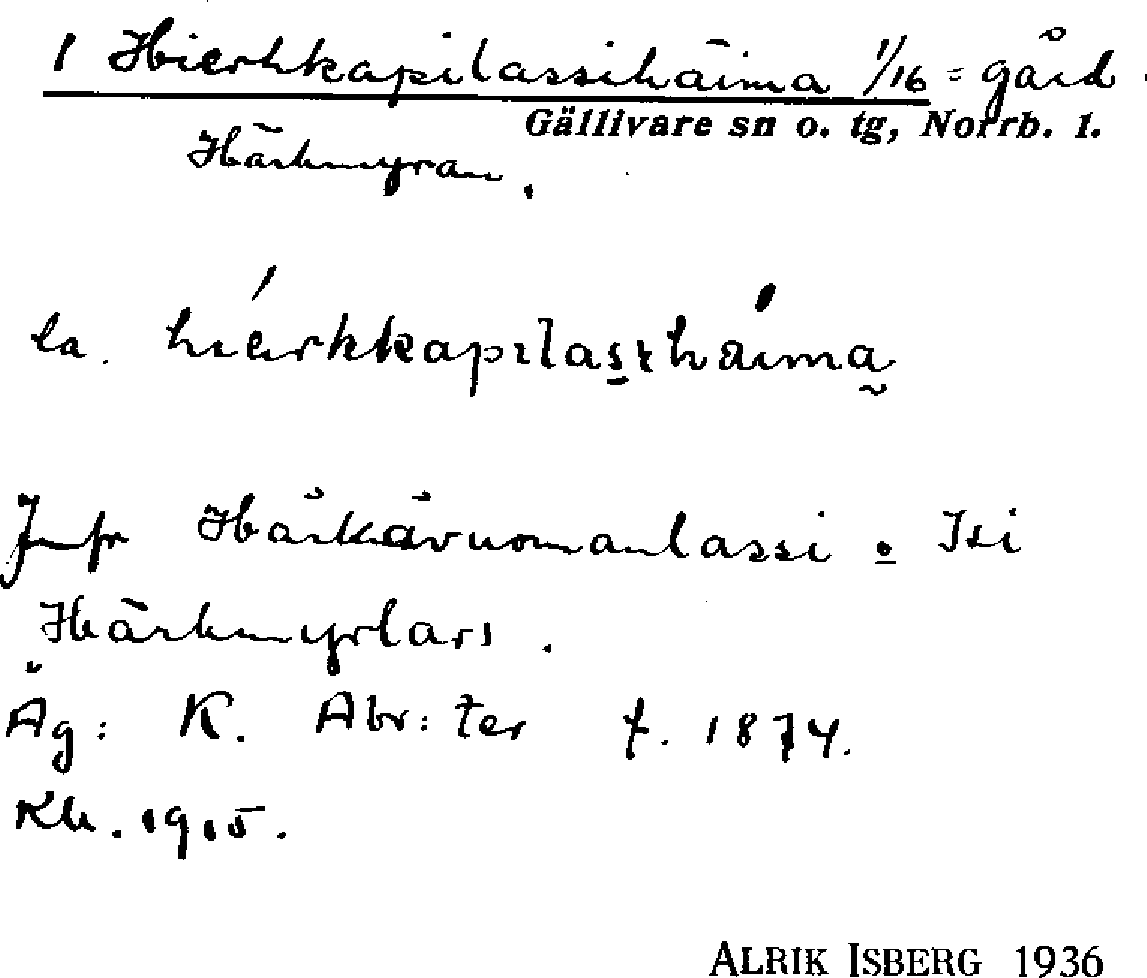 1 Hierkkapilassihäima 1/16 = gård
Gällivare sn o. tg, Norrb. l.
Härkmyran.
la. hierkkapilassihäima
Jmfr Härkävuomanlassi o Isi
Härkmyrlars.
Äg: K. Abr:ter f. 1874.
Kh. 1915.
ALRIK ISBERG 1936